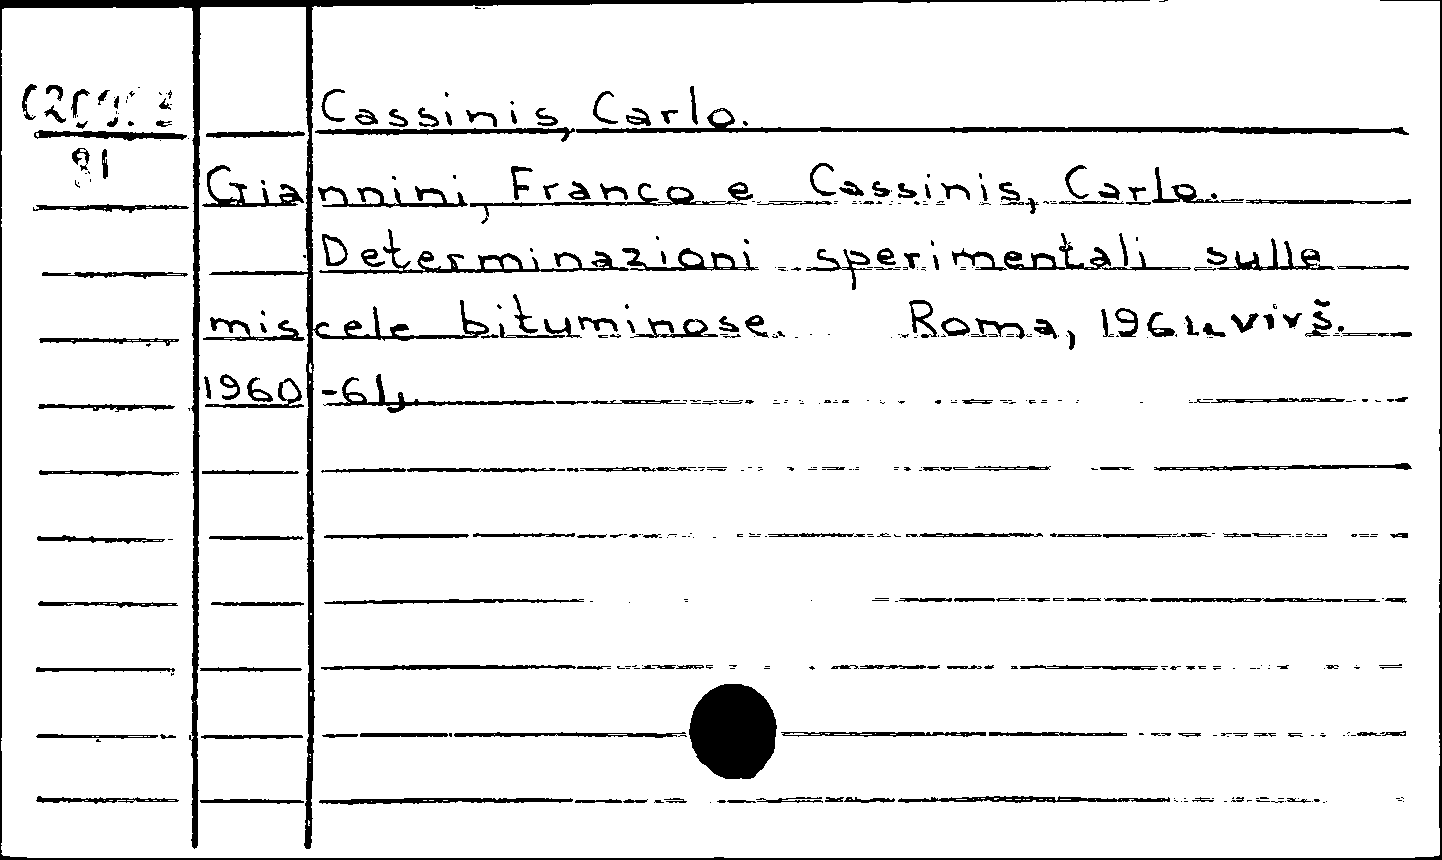 Cassinis, Carlo.
81
Giannini, Franco e Cassinis, Carlo.
Determinazioni sperimentali sulle
miscele bituminose. Roma, 1961, virš.
1960-61,